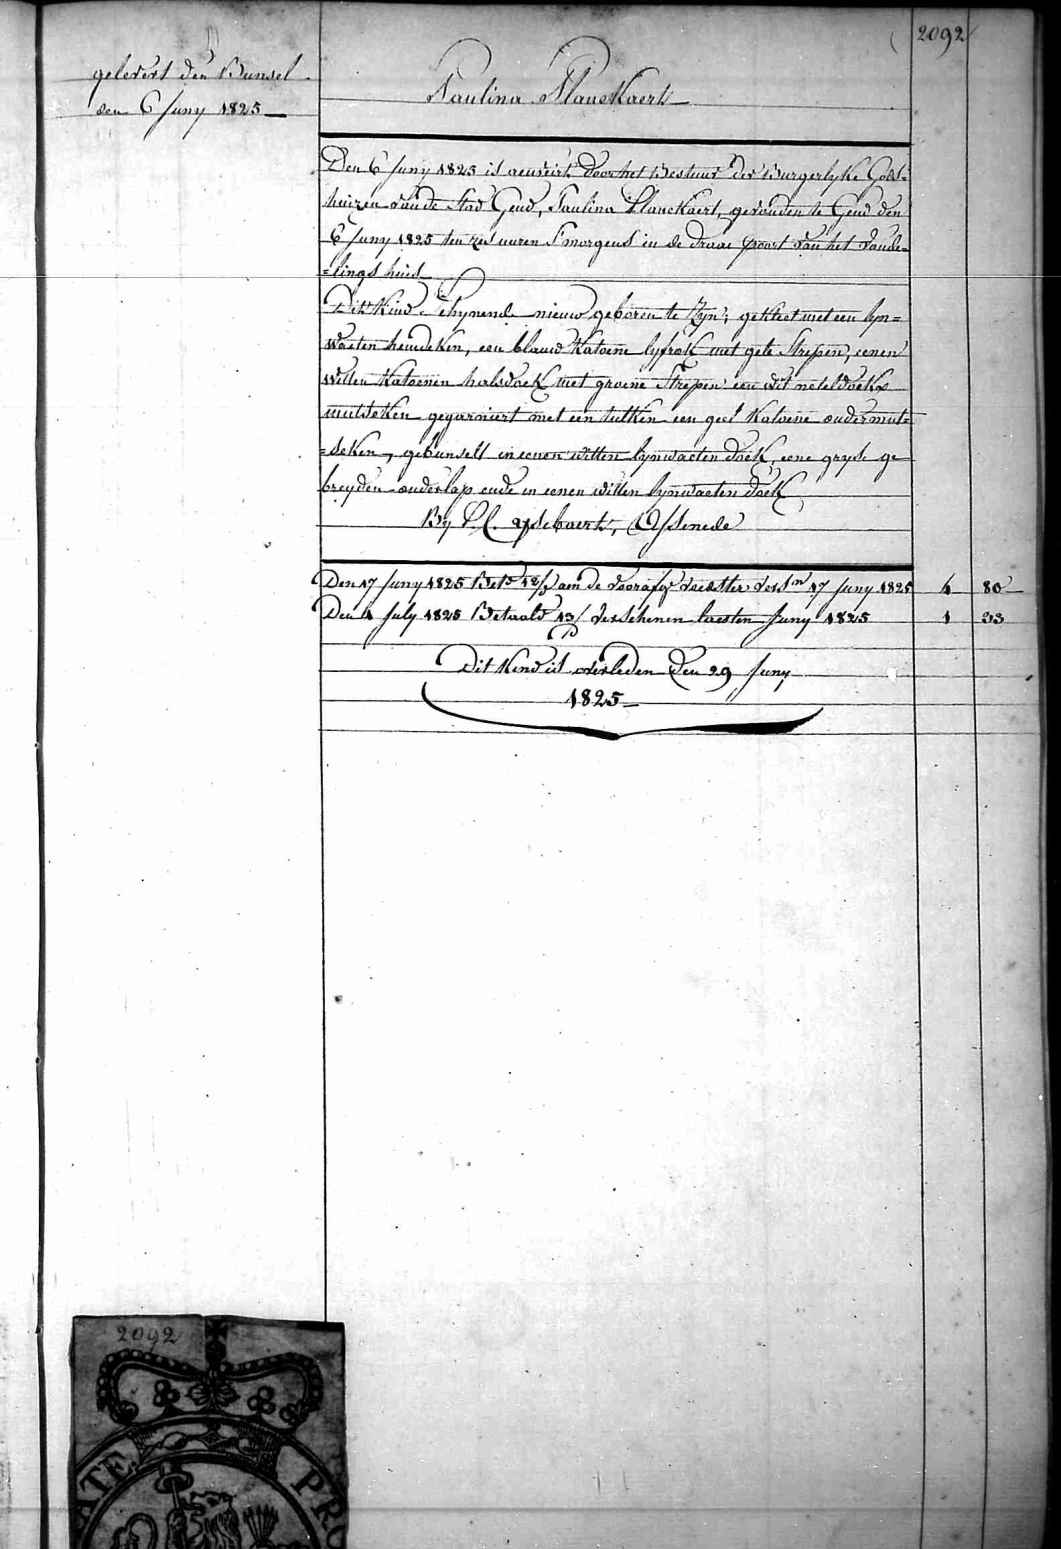 2092
gelevert den Bunsel
den 6 Juny 1825
Paulina Planckaert
Den 6 Juny 1825 is aenveirt door het Bestuur der Burgerlyke Gods=
huizen van de Stad Gend, Paulina Planckaert, gevonden te Gend den
6 Juny 1825 ten zes uuren S'morgens in de draae poort van het Vonde=
=lings huis
Dit Kind Schynende nieuw geboren te Zyn; gekleet met een lyn=
waeten hemdeken, een blauw Katoene lyfrok met gele Strepen, eenen
witten Katoenen halsdoek met groene Strepen een wit neteldoeks
mutseken gegarniert met een tulken een geel Katoene ondermut=
=seken, gebunselt in eenen witten lynwaeten doek, eene gryse ge
breyden onderlap ende in eenen witten lynwaeten doek
By Assenede
Den 17 Juny 1825 aen de 17 Juny 1825 4 80
Den 4 July 1825 Betaald 13/ Verschenen laesten Juny 1825 1 33
Dit Kind is overleden den 29 Juny
1825
2092
ATE PRO